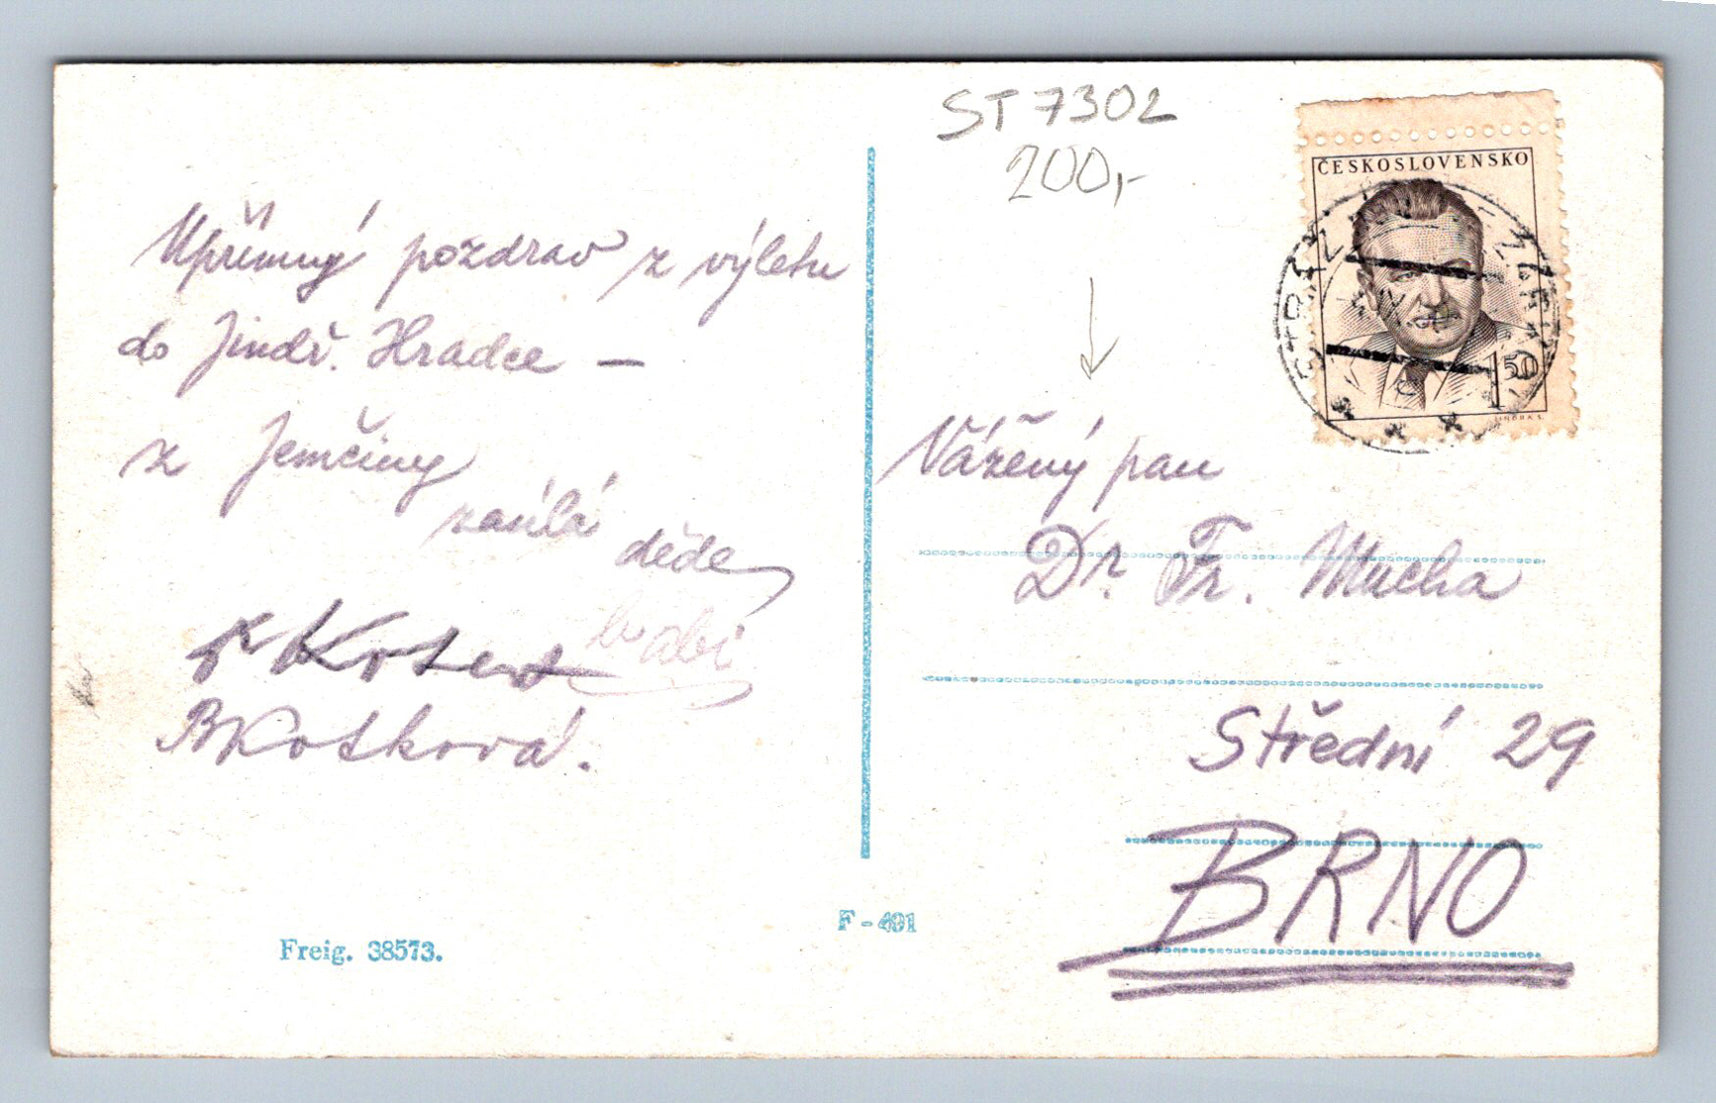 ST 7302
200,-
ČESKOSLOVENSKO
1 50
Upřímný pozdrav z výletu
do Jindř. Hradce —
z Jemčiny
zasílá
děde
babi
BKotková.
Vážený pan
Dr. Fr. Mucha
Střední 29
BRNO
F - 491
Freig. 38573.